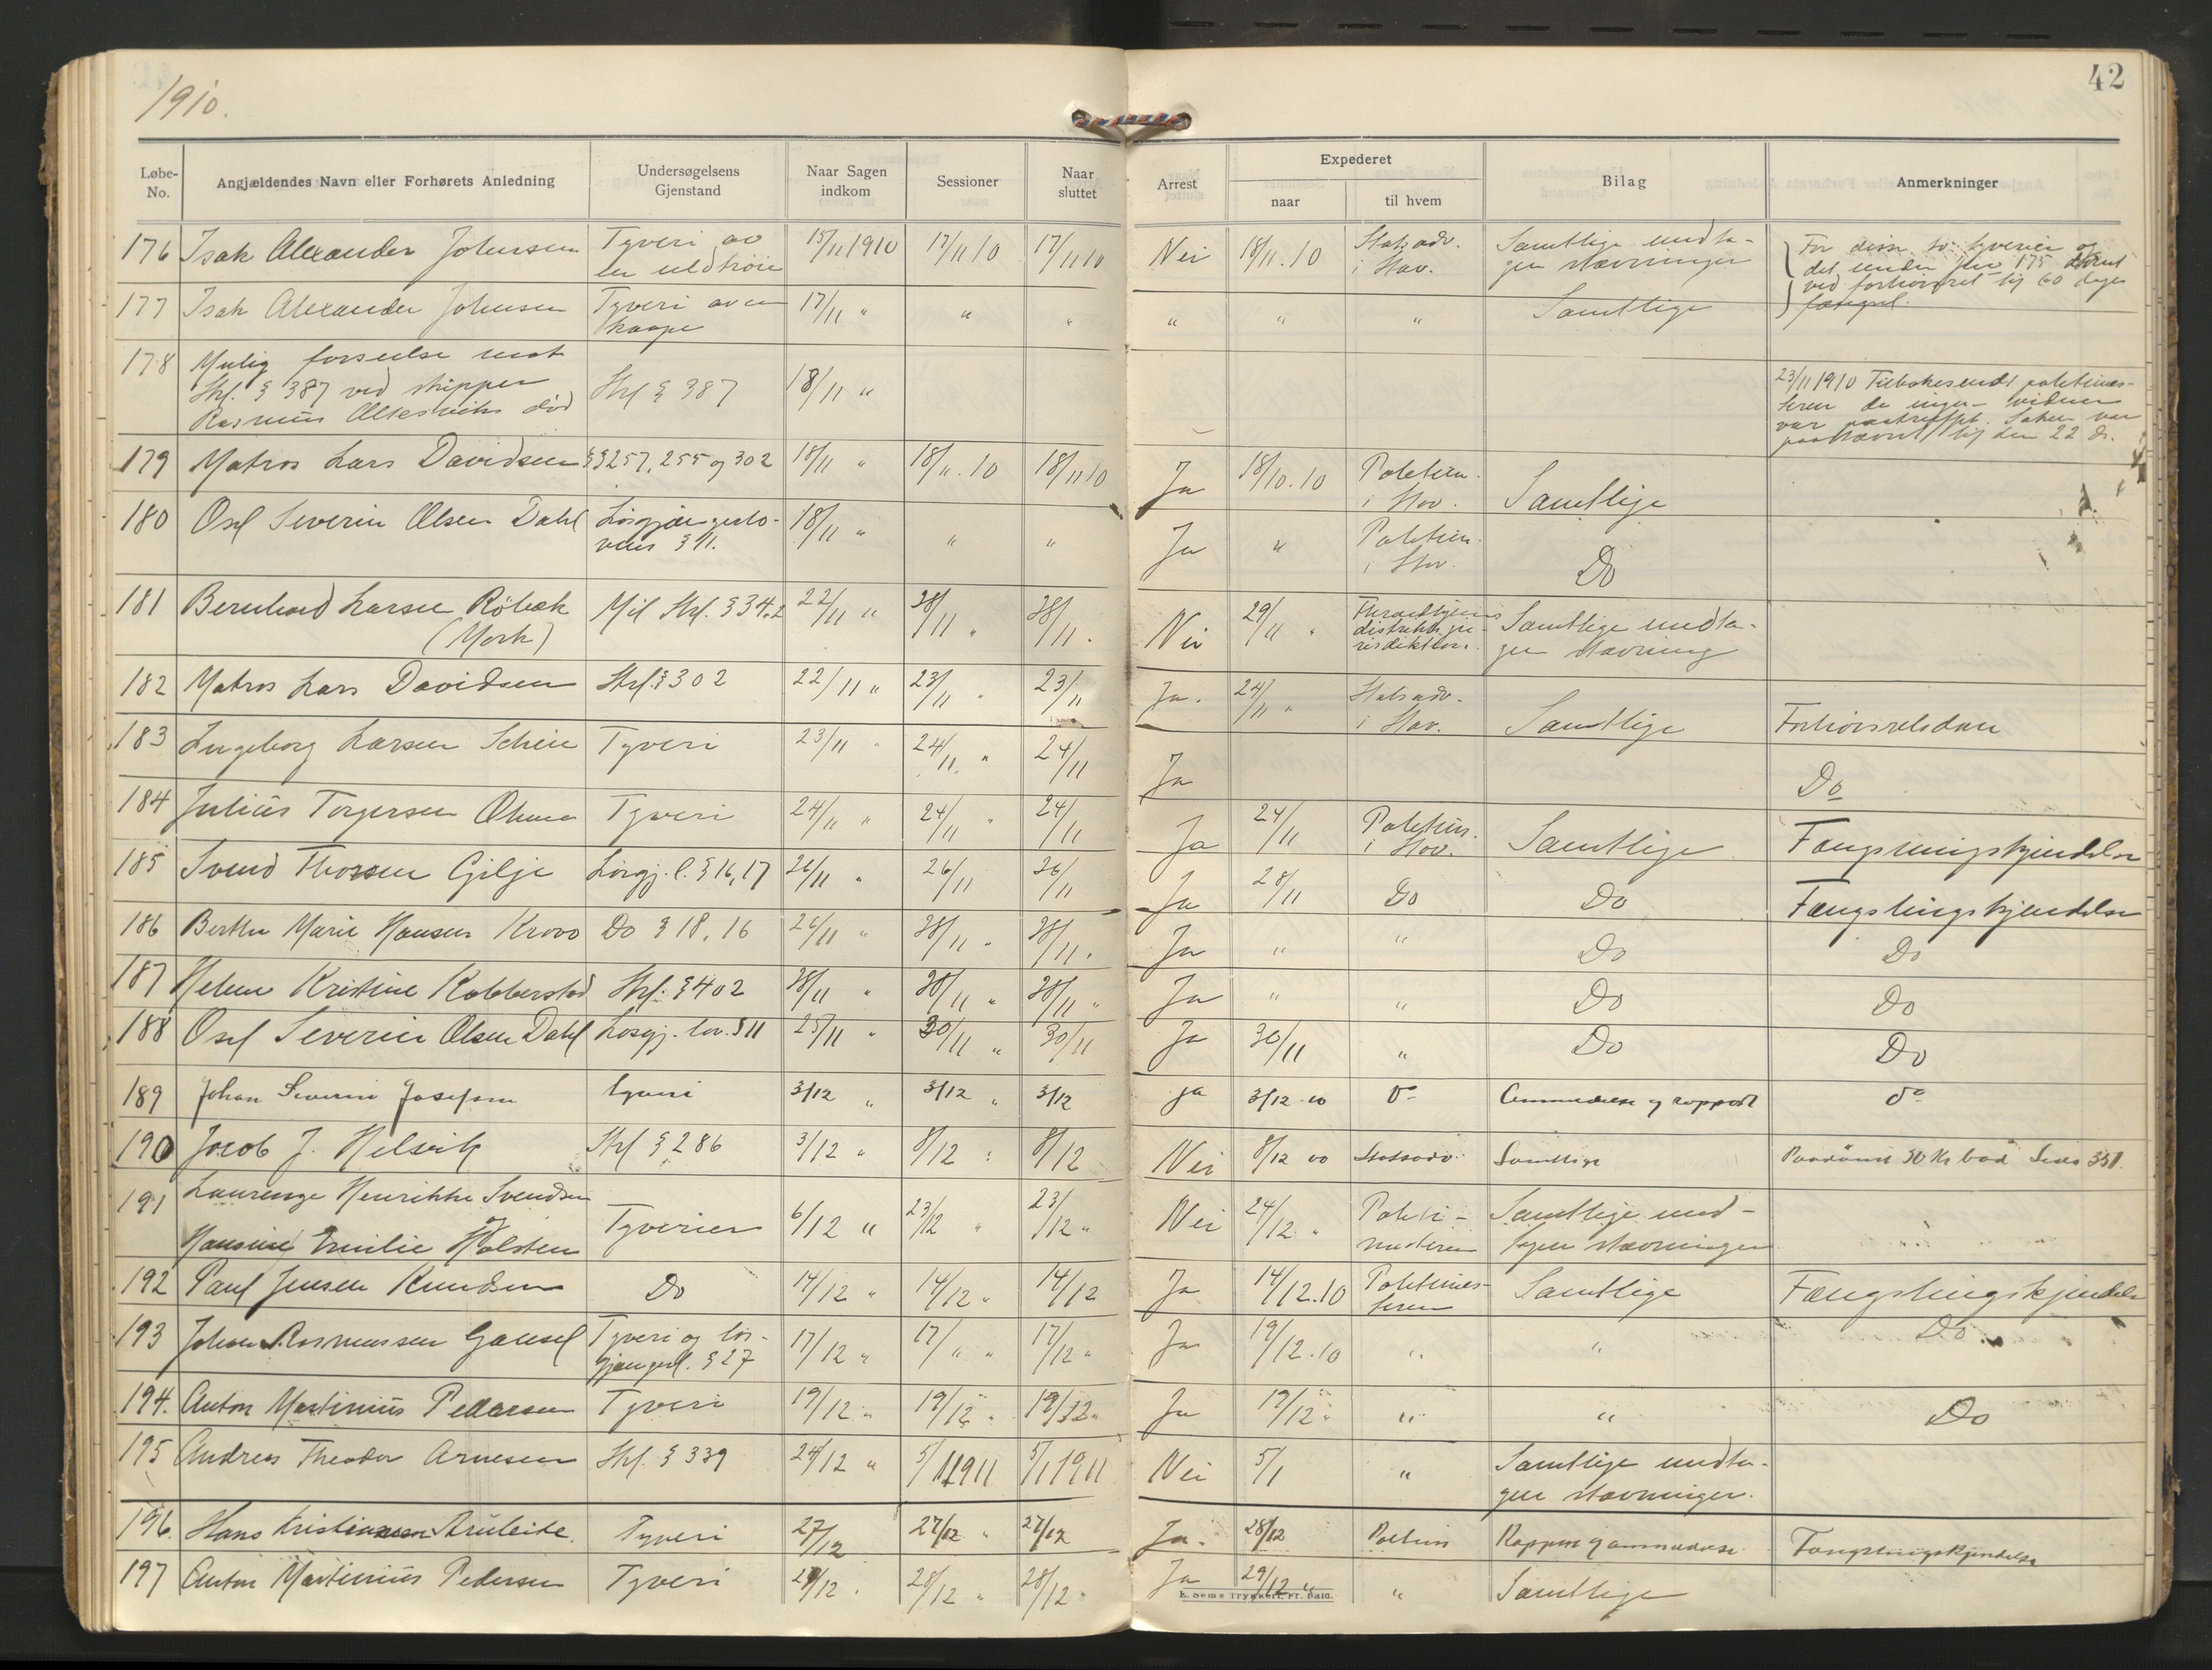 1910.
42
Løbe-No. Angjældendes Navn eller Forhørets Anledning Undersøgelsens Gjenstand Naar Sagen indkom Sessioner Naar sluttet Arrest Expederet naar til hvem Bilag Anmerkninger
176 Isak Alexander Johnsen Tyveri av en uldtrøie 15/11 1910 17/11 10 17/11 10 Nei 18/11.10 Statsadv. i Stav. Samtlige undtagen stævninger For disse to tyverier og det under ved forhørsret til 60 dages fængsel.
177 Isak Alexander Johnsen Tyveri av en kaape 17/11 " " " " " " Samtlige
178 Mulig forseelse mot Strl. § 387 ved skipper Rasmus død Strl § 387 18/11 " 23/11 1910 Tilbakesendt politimesteren da ingen vidner var Saken var til den 22 ds.
179 Matros Lars Davidsen §§ 257, 255 og 302 18/11 " 18/11.10 18/11 10 Ja 18/10.10 Politim. i Stav. Samtlige
180 Osel Severin Olsen Dahl Løsgjængerlovens § 11. 18/11 " " " Ja " Politim. i Stav. Do
181 Bernhard Larsen Röbæk (Mork) Mil Strl. § 34.2 22/11 " 28/11 " 28/11. Nei 29/11 " Samtlige undtagen stævning
182 Matros Lars Davidsen Strl. § 302 22/11 " 23/11 " 23/11 Ja. 24/11 " Statsadv. i Stav. Samtlige Forhørsretsdom
183 Ingeborg Larsen Scheie Tyveri 23/11 " 24/11 " 24/11 Ja Do
184 Julius Torgersen Tyveri 24/11 " 24/11 " 24/11 Ja 24/11 Politim. i Stav. Samtlige Fængslingskjendelse
185 Svend Thorsen Gilje Løsgj. l. § 16, 17 26/11 " 26/11 26/11 Ja 28/11 Do Do Fængslingskjendelse
186 Berthe Marie Hansen Do § 18, 16 26/11 " 28/11 " 28/11. Ja " " Do Do
187 Helene Kristine Kobberstad Strl. § 402 28/11 " 28/11 " 28/11 " Ja " " Do Do
188 Osel Severin Olsen Dahl Løsgj. lov. § 11 25/11 " 30/11 " 30/11 Ja 30/11 " Do Do
189 Johan Severin Josefsen tyveri 3/12 " 3/12 " 3/12 ja 3/12 10 Do Anmeldelse og rapport do
190 Jacob J. Helsvik Strl § 286 3/12 " 8/12 " 8/12 Nei 8/12 10 Statsadv. Samtlige 30 Kr bod
191 Laurenze Henrikke Svendsen og Hansine Emilie Holsten Tyverier 6/12 " 23/12 " 23/12 " Nei 24/12 " Politimesteren Samtlige undtagen stævningen
192 Paul Jensen Knudsen Do 14/12 " 14/12 " 14/12 Ja 14/12.10 Politimesteren Samtlige Fængslingskjendelse
193 Johan Rasmussen Gausel Tyveri og løsgjængerl. § 27 17/12 " 17/ " " 17/12 " Ja 19/12.10 " " Do
194. Anton Martinius Pedersen Tyveri 19/12 " 19/12 " 19/12 " Ja 19/12 " " " Do
195 Andreas Theodor Arnesen Strl. § 339 24/12 " 5/1 1911 5/1 1911 Nei 5/1 " Samtlige undtagen stævninger.
196. Hans Kristiansen Tyveri 27/12 27/12 " 27/12 Ja. 28/12 Politim Rapport og anmeldelse Fængslingskjendelse
197 Anton Martinius Pedersen Tyveri 28/12 " 28/12 " 28/12 " Ja 29/12 " " Samtlige